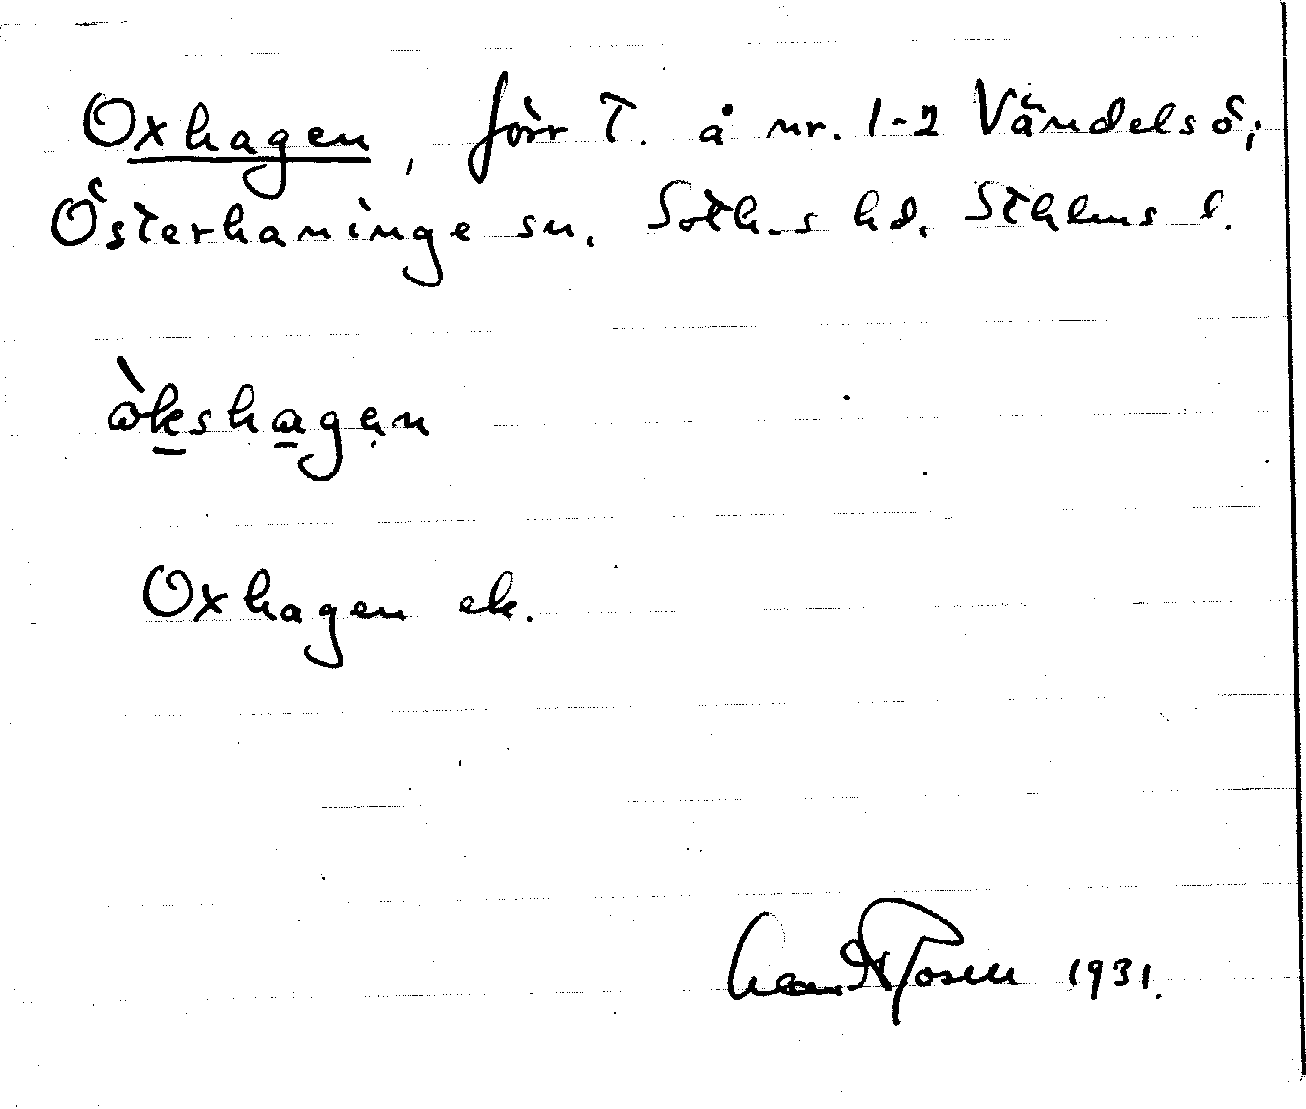 Oxhagen, förr T. å nr. 1-2 Vändelsö,
Österhaninge sn. Soth-s hd. Sthlms l.
ὼkshagen
Oxhagen ek.
1931.